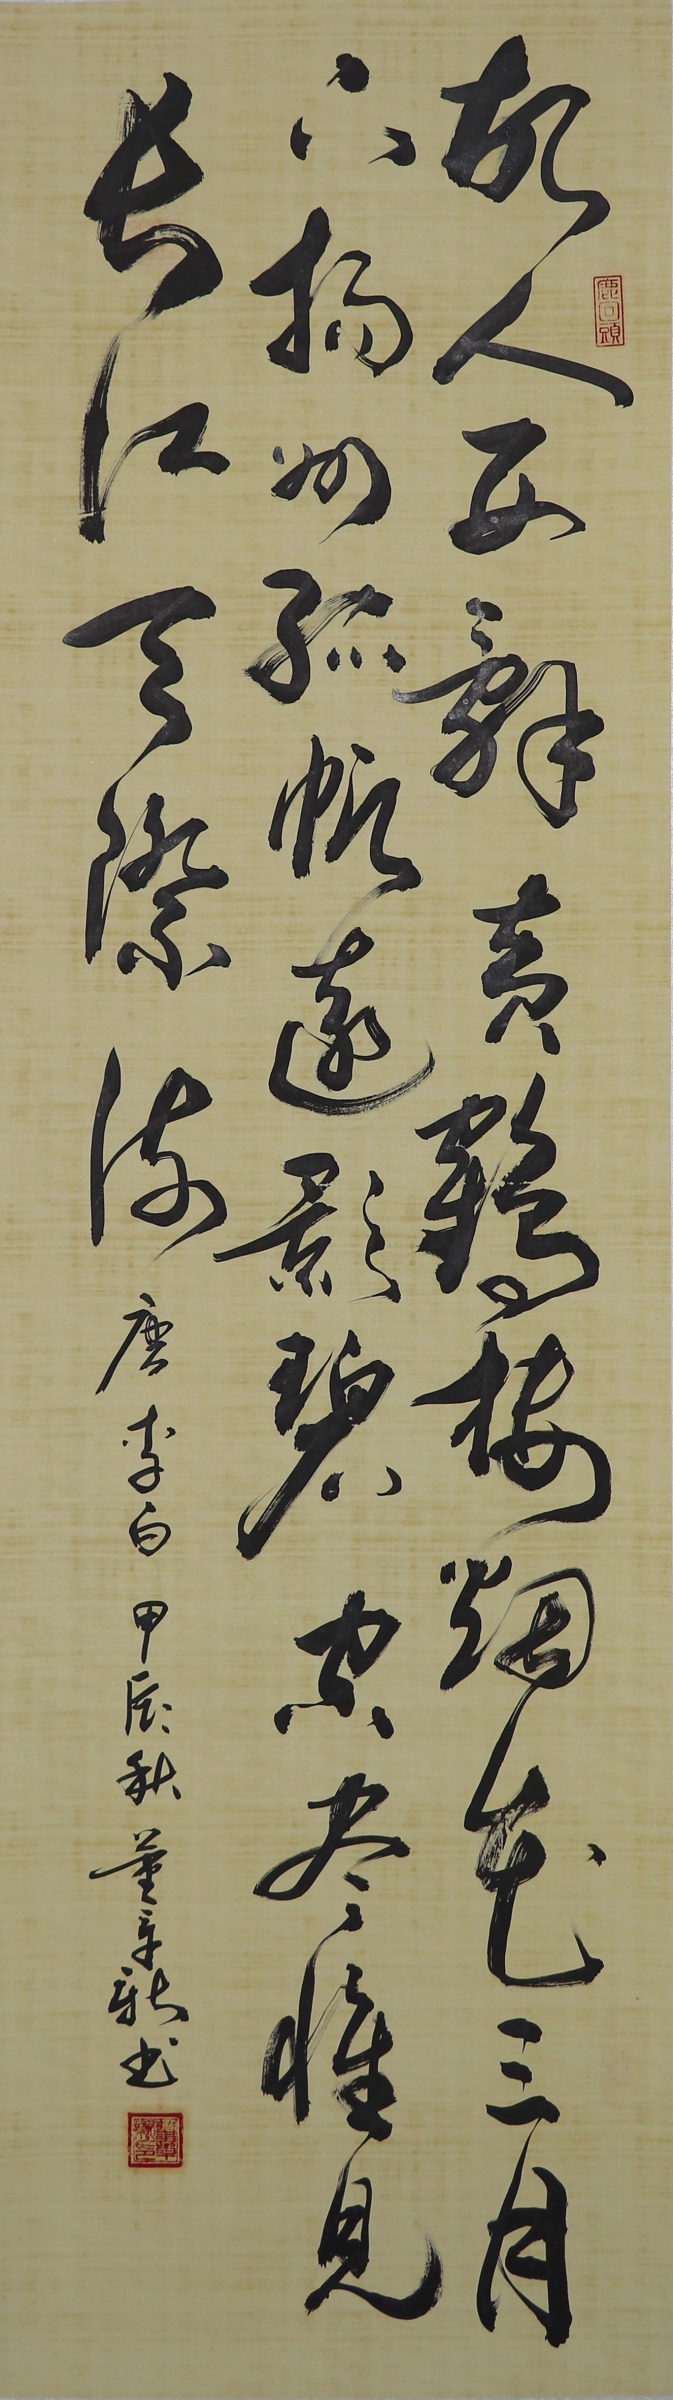 鹿回頭
故人西辭黄鶴楼烟花三月
下揚州孤帆遠影碧空尽惟見
长江天際流唐李白甲辰秋董書